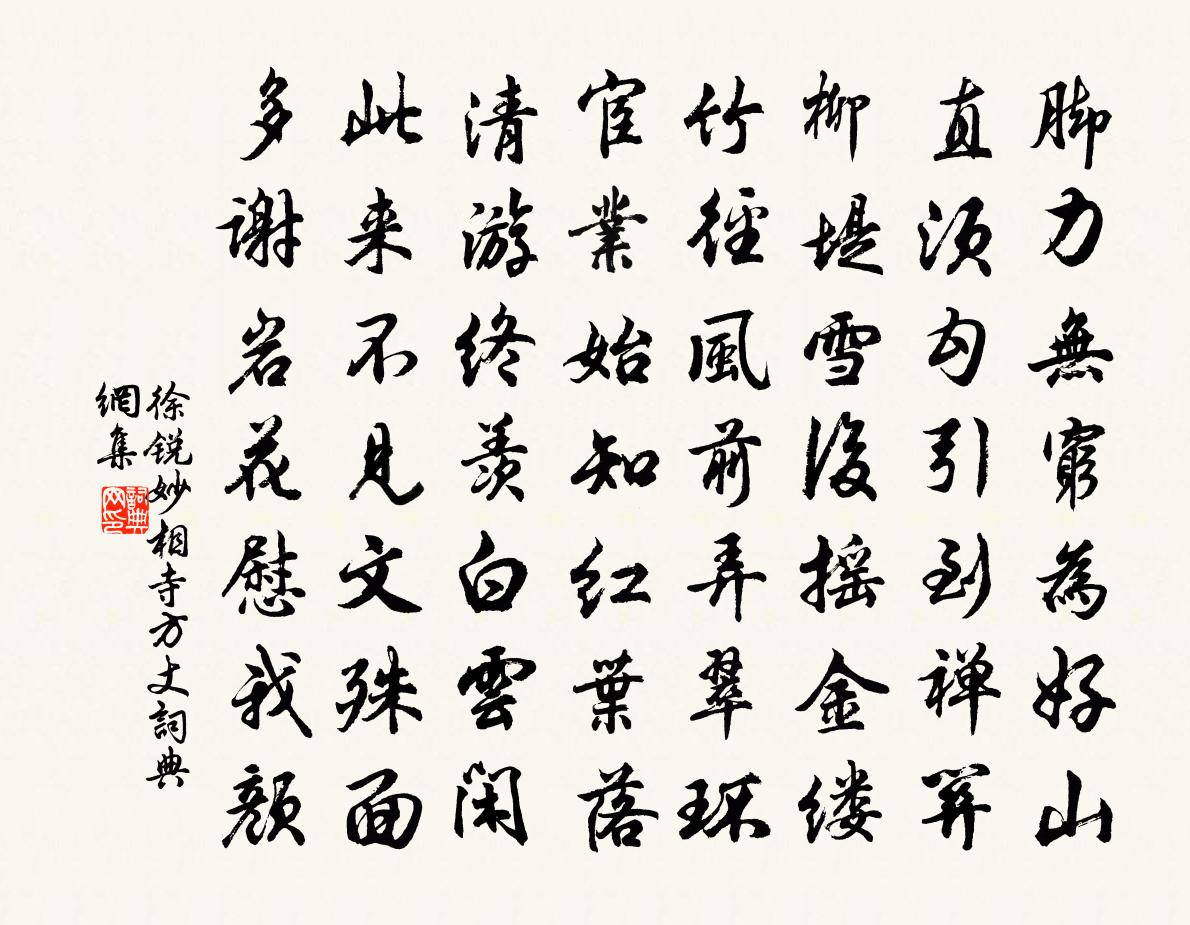 脚力無窮為好山
直須勾引到禅關
柳堤雪後摇金缕
竹徑風前弄翠環
宦業始知红葉落
清游终羡白雲闲
此来不見文殊面
多謝岩花慰我顔
徐锐妙相寺方丈詞典
網集
詞典
网印